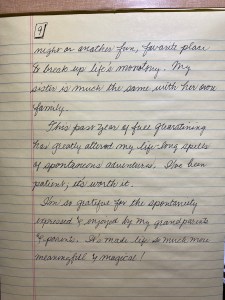 9
night or another fun, favorite place
to break up life's monotony. My
sister is much the same with her own
family.
This past year of full quarantining
has greatly altered my life-long spells
of spontaneous adventures. I've been
patient, it's worth it.
I'm so grateful for the spontaneity
expressed & enjoyed by my grandparents
& parents. It's made life so much more
meaningful & magical!